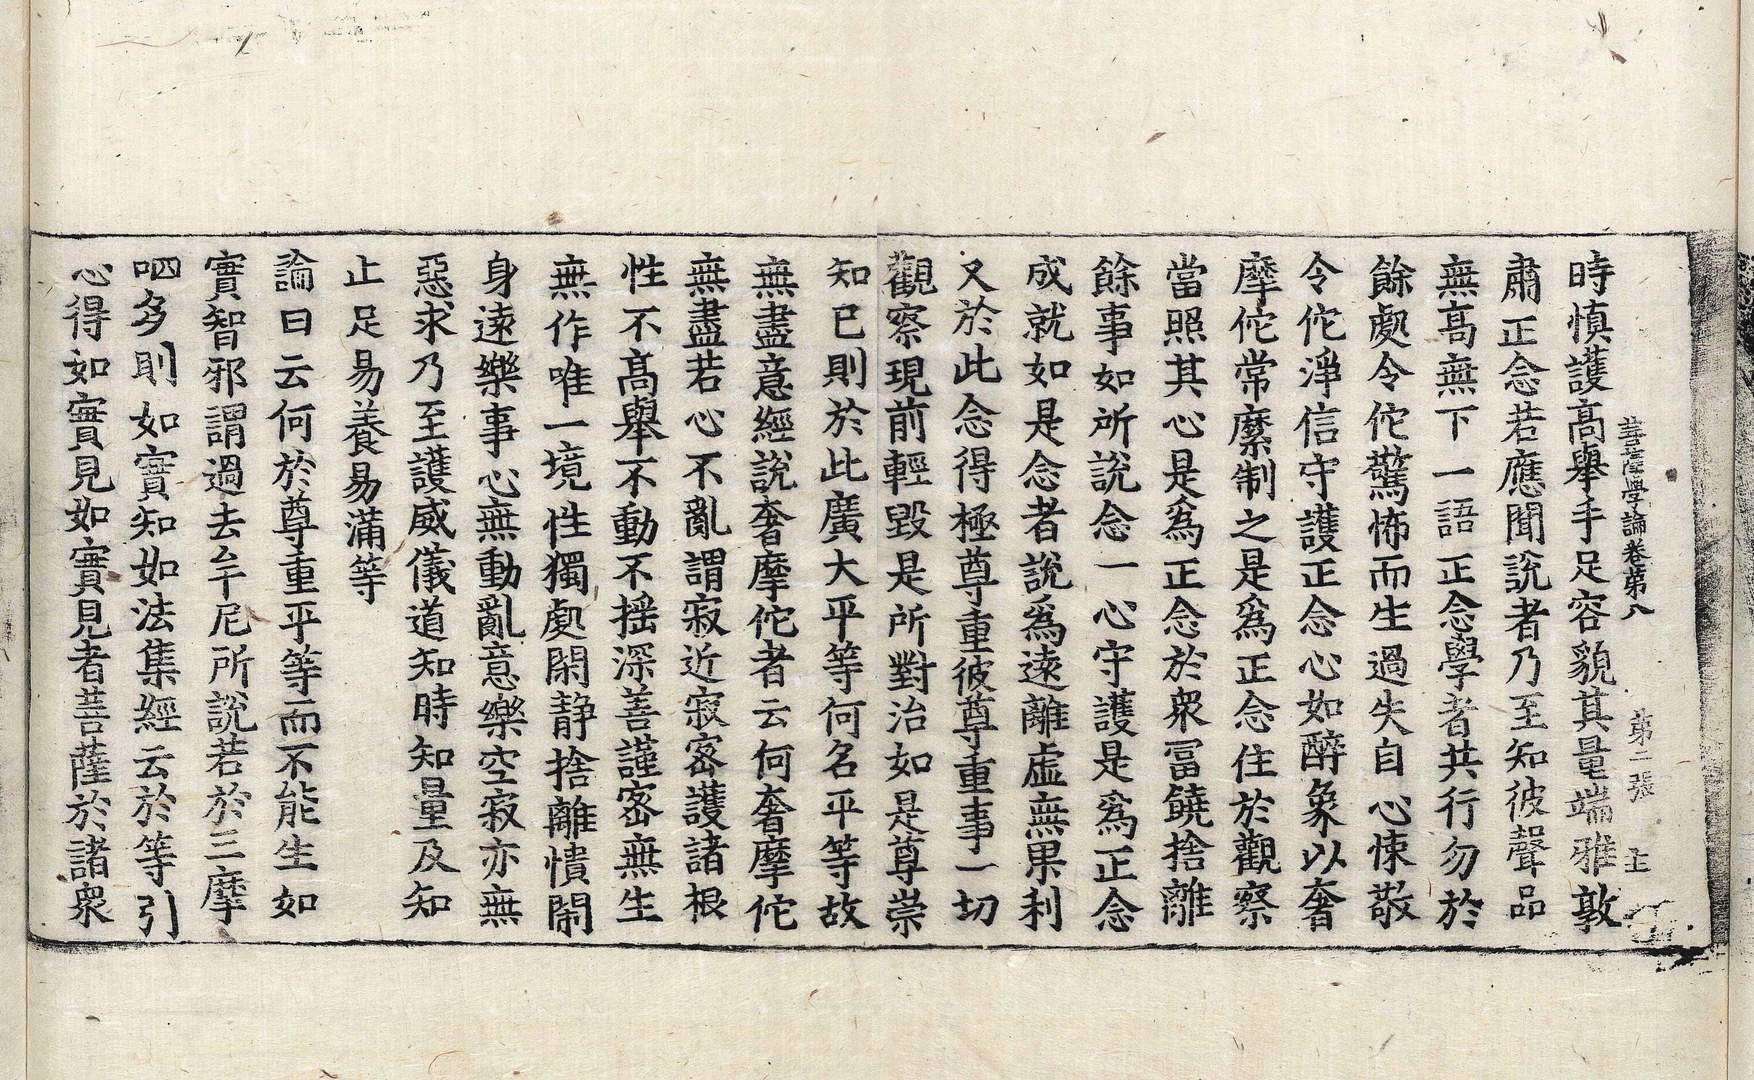 菩薩學論卷第八　第二張　正
時慎護高舉手足容貌其量端雅敦
肅正念若應聞說者乃至知彼聲品
無高無下一語正念學者共行勿於
餘處令佗驚怖而生過失自心悚敬
令佗淨信守護正念心如醉象以奢
摩佗常縻制之是爲正念住於觀察
當照其心是爲正念於衆冨饒捨離
餘事如所說念一心守護是爲正念
成就如是念者說爲遠離虛無果利
又於此念得極尊重彼尊重事一切
觀察現前輕毀是所對治如是尊崇
知已則於此廣大平等何名平等故
無盡意經說奢摩佗者云何奢摩佗
無盡若心不亂謂寂近寂密護諸根
性不高舉不動不揺深善謹密無生
無作唯一境性獨處閑靜捨離憒閙
身遠樂事心無動亂意樂空寂亦無
惡求乃至護威儀道知時知量及知
止足易養易滿等
論曰云何於尊重平等而不能生如
實智邪謂過去牟尼所說若於三摩
呬多則如實知如法集經云於等引
心得如實見如實見者菩薩於諸衆